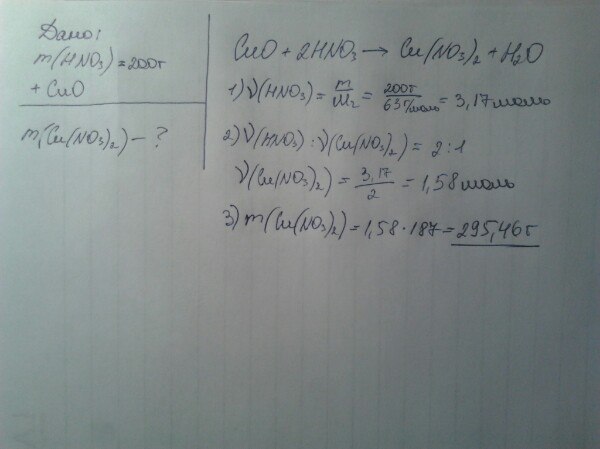 Дано:
m(HNO₃)=200г
+ CuO
m(Cu(NO₃)₂) – ?
CuO + 2HNO₃ → Cu(NO₃)₂ + H₂O
1) ν(HNO₃) = m/Mr = 200г/63г/моль = 3,17 моль
2) ν(HNO₃) : ν(Cu(NO₃)₂) = 2:1
ν(Cu(NO₃)₂) = 3,17/2 = 1,58 моль
3) m(Cu(NO₃)₂) = 1,58 · 187 = 295,46г